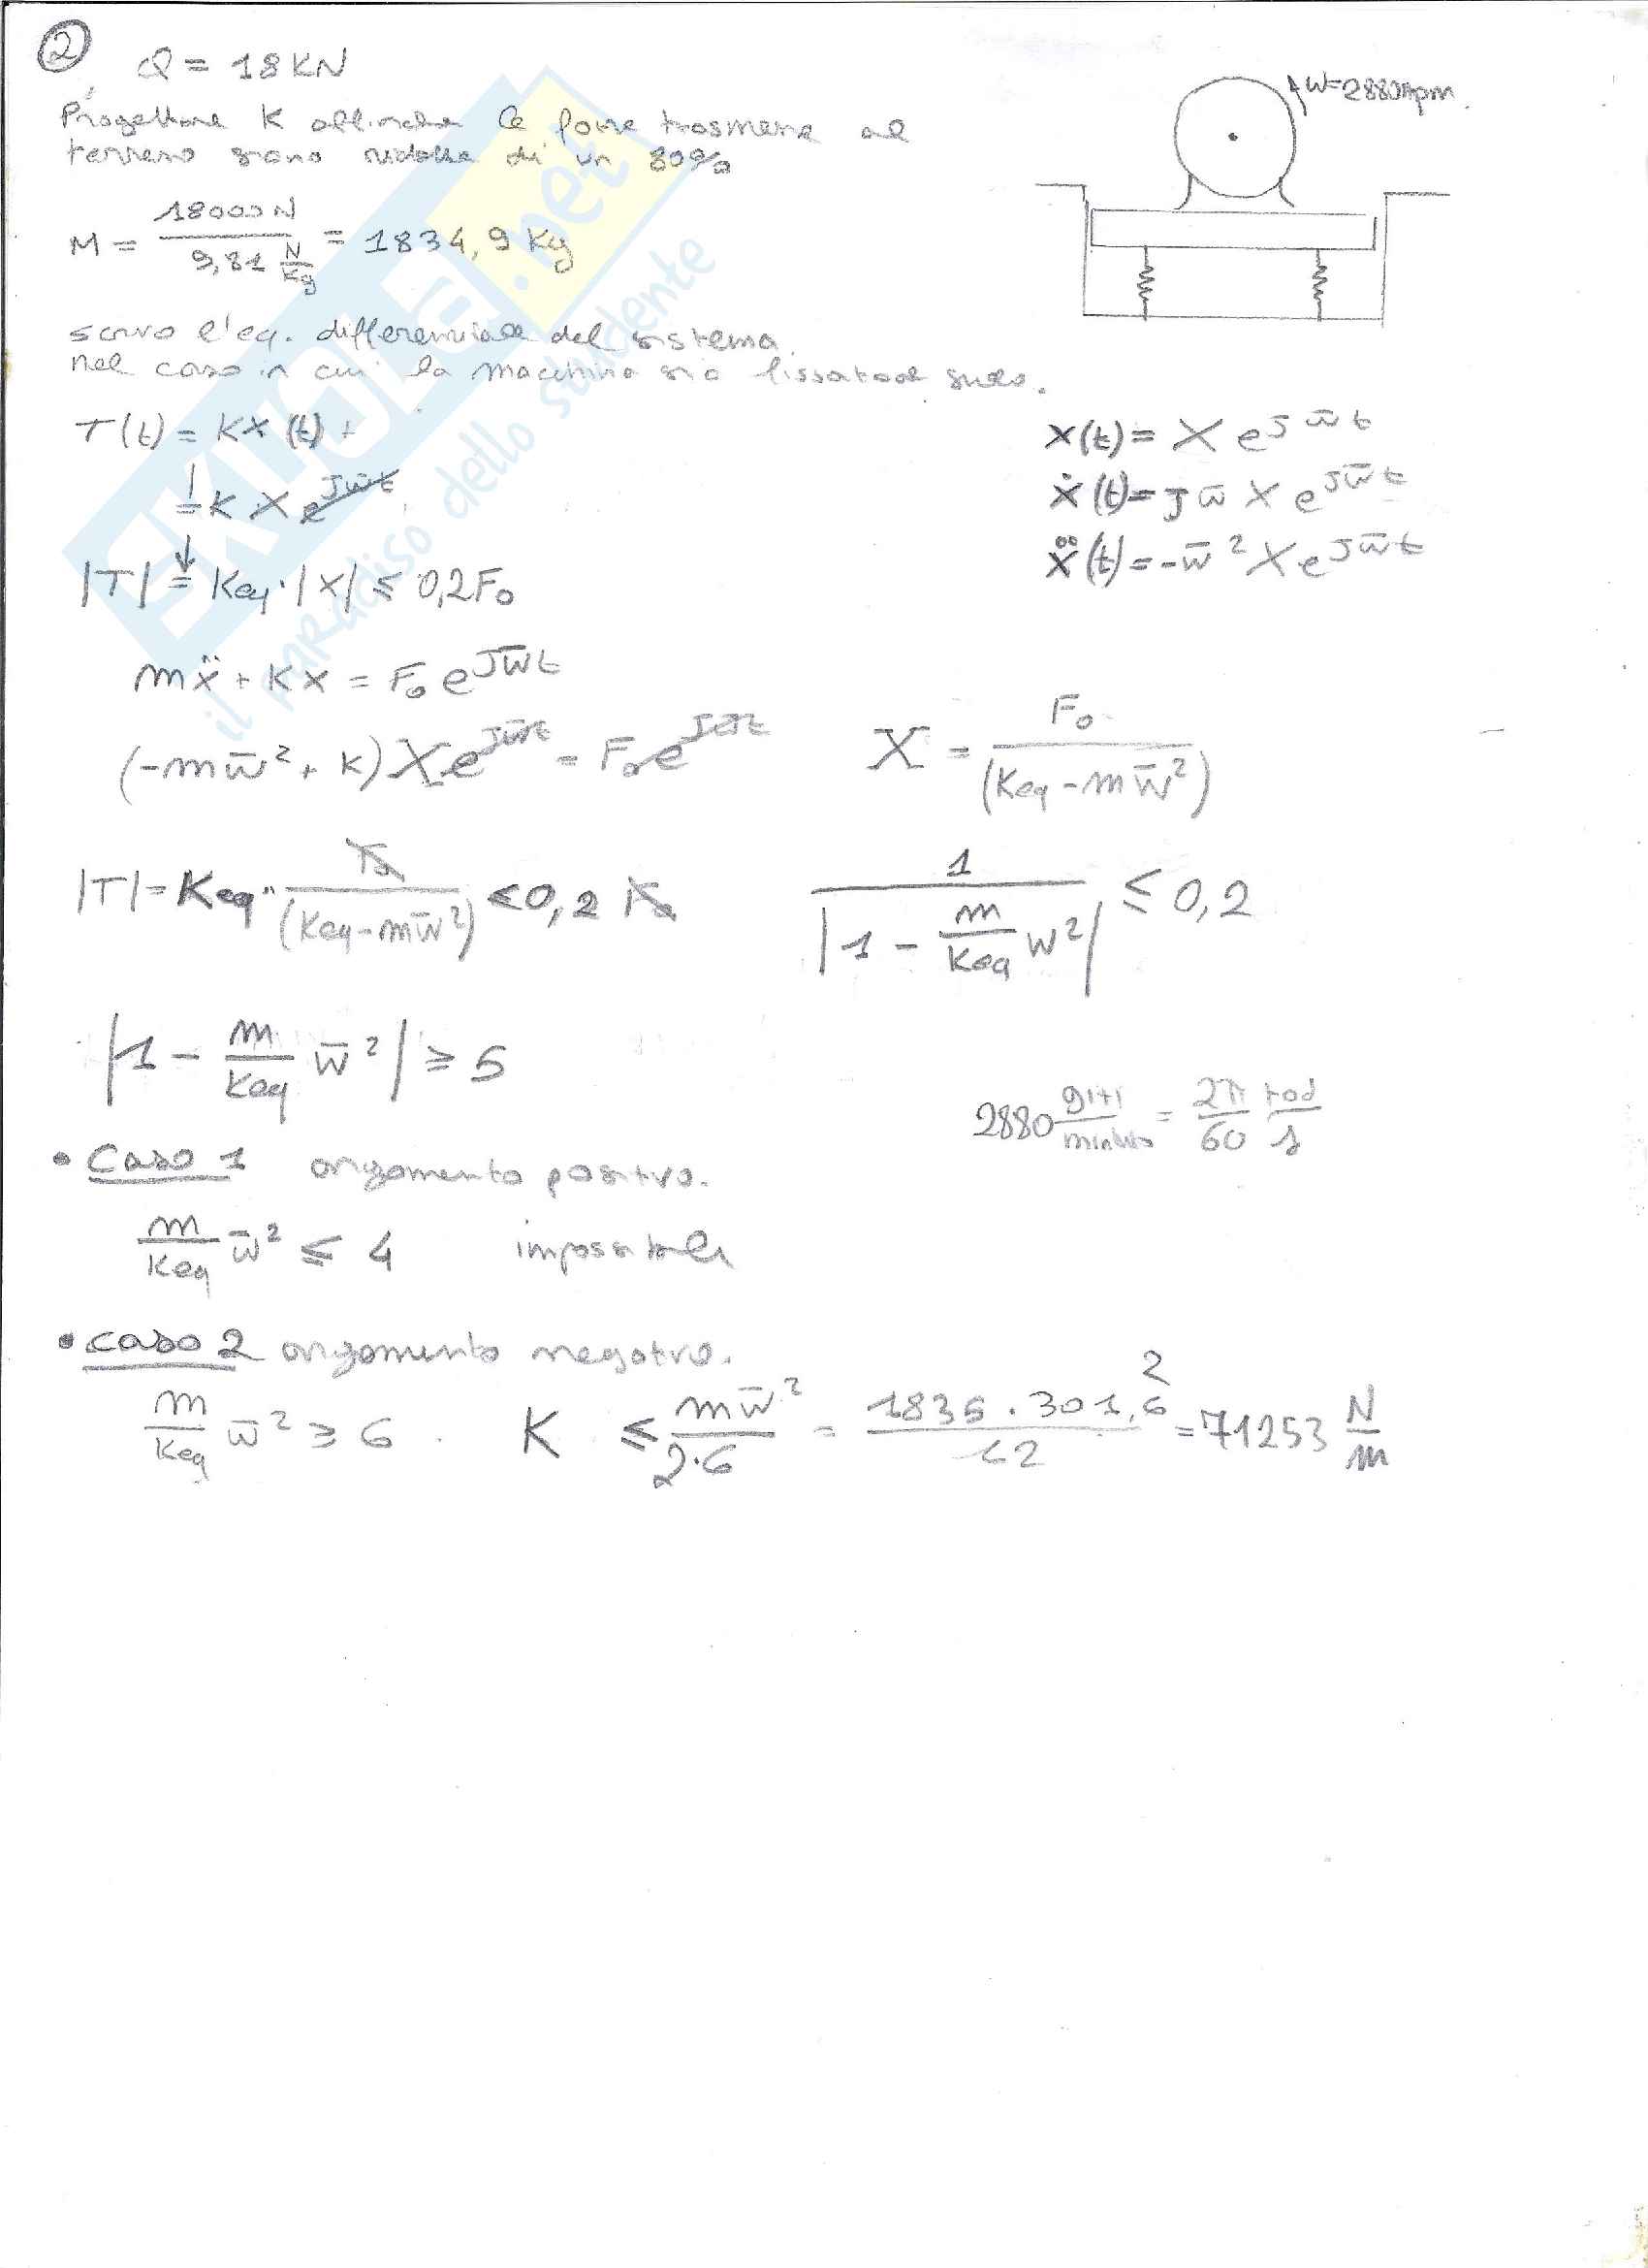 2
Q = 18 KN
Progettare K affinche le forze trasmesse al
terreno siano ridotte di un 80%
W=2880 rpm.
M = 18000 N / 9,81 N/Kg = 1834,9 Kg
scrivo l'eq. differenziale del sistema.
nel caso in cui la macchina sia fissata al suolo.
T(t) = Kx(t) +
= K X e^{Jw̄t}
|T| = Keq · |X| ≤ 0,2F₀
x(t) = X e^{J w̄ t}
ẋ(t) = J w̄ X e^{Jw̄t}
ẍ(t) = -w̄² X e^{Jw̄t}
mẍ + Kx = F₀ e^{Jw̄t}
(-mw̄² + K) X e^{Jw̄t} = F₀ e^{Jw̄t}
X = F₀ / (Keq - mw̄²)
|T| = Keq · F₀ / (Keq - mw̄²) ≤ 0,2 F₀
1 / |1 - m/Keq w²| ≤ 0,2
|1 - m/Keq w̄²| ≥ 5
2880 giri/minuto = 2π/60 rad/s
• Caso 1 argomento positivo.
m/Keq w̄² ≤ 4 impossibile
• caso 2 argomento negativo.
m/Keq w̄² ≥ 6 . K ≤ mw̄² / 2·6 = 1835 · 301,6² / 12 = 71253 N/m
SKUOLA.net
il paradiso dello studente